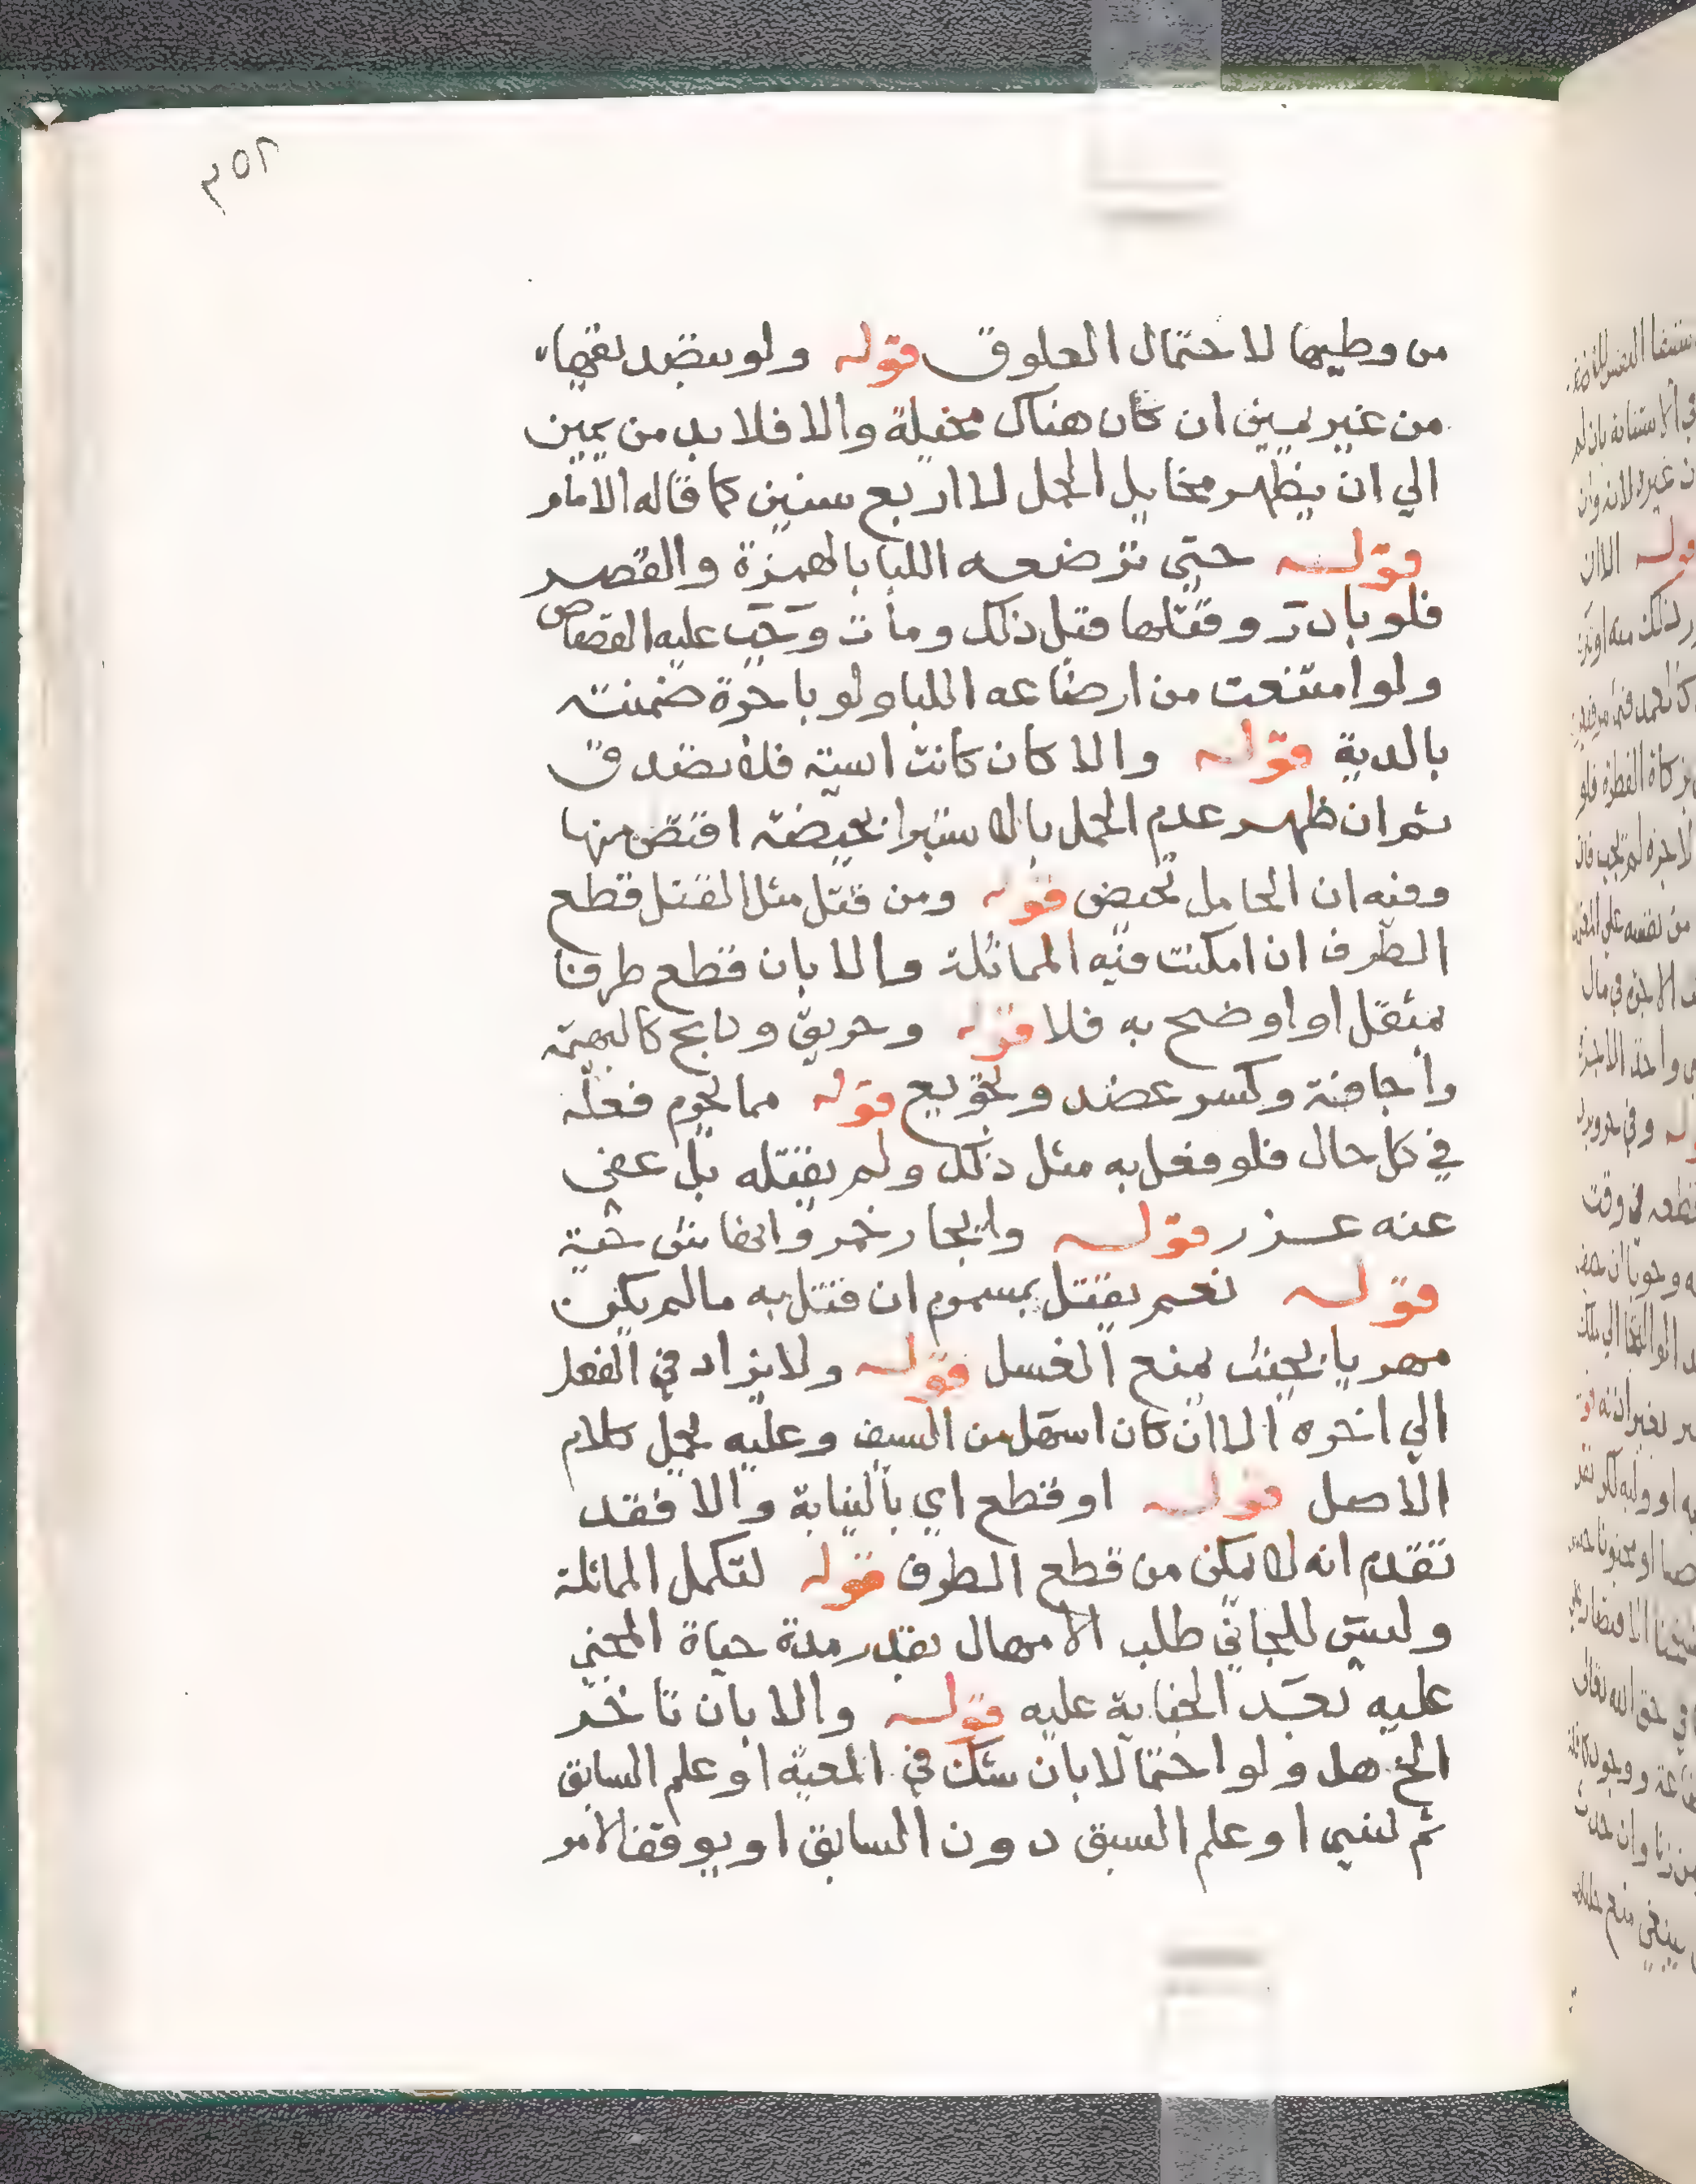 ٣٥٢
من وطيها لاحتمال العلوق قوله ولو بتصديقها
من غير يمين ان كان هناك مخيلة والا فلا بد من يمين
الي ان يظهر مخايل الحمل لا اربع سنين كما قاله الامام
قوله حتي ترضعه اللبا بالهمزة والقصر
فلو بادر وقتلها قبل ذلك ومات وجب عليه القصاص
ولو امتنعت من ارضاعه اللبا ولو باجرة ضمنته
بالدية قوله والا كان كانت ايسة فلا تصدق
ثم ان ظهر عدم الحمل بالاستبرا بحيضة اقتص منها
وفيه ان الحامل تحيض قوله ومن قتل مثل القتل قطع
الطرف ان امكنت فيه المماثلة والا بان قطع طرفا
بمثقل او اوضح به فلا قوله وحريق وذابح كالبهيمة
واجافة وكسر عضد وتجويع قوله مما يحرم فعله
في كل حال فلو فعل به مثل ذلك ولم يقتله بل عفى
عنه عزر قوله وايجار خمر وانحا بنى خشبة
قوله نعم يقتل بمسموم ان قتل به مالم يكن
مهريا بحيث يمنع الغسل قوله ولا يزاد في الفعل
الي اخره الا ان كان اسهل من السيف وعليه يحمل كلام
الاصل قوله او قطع اي بالنيابة والا فقد
تقدم انه لا يمكن من قطع الطرف قوله لتكمل المماثلة
وليس للجاني طلب الامهال بقدر مدة حياة المجني
عليه بعد الجناية عليه قوله والا بان تاخر
الخ هل ولو احتمالا بان شك في المعية او علم السابق
ثم نسي او علم السبق دون السابق او يوقف الامر